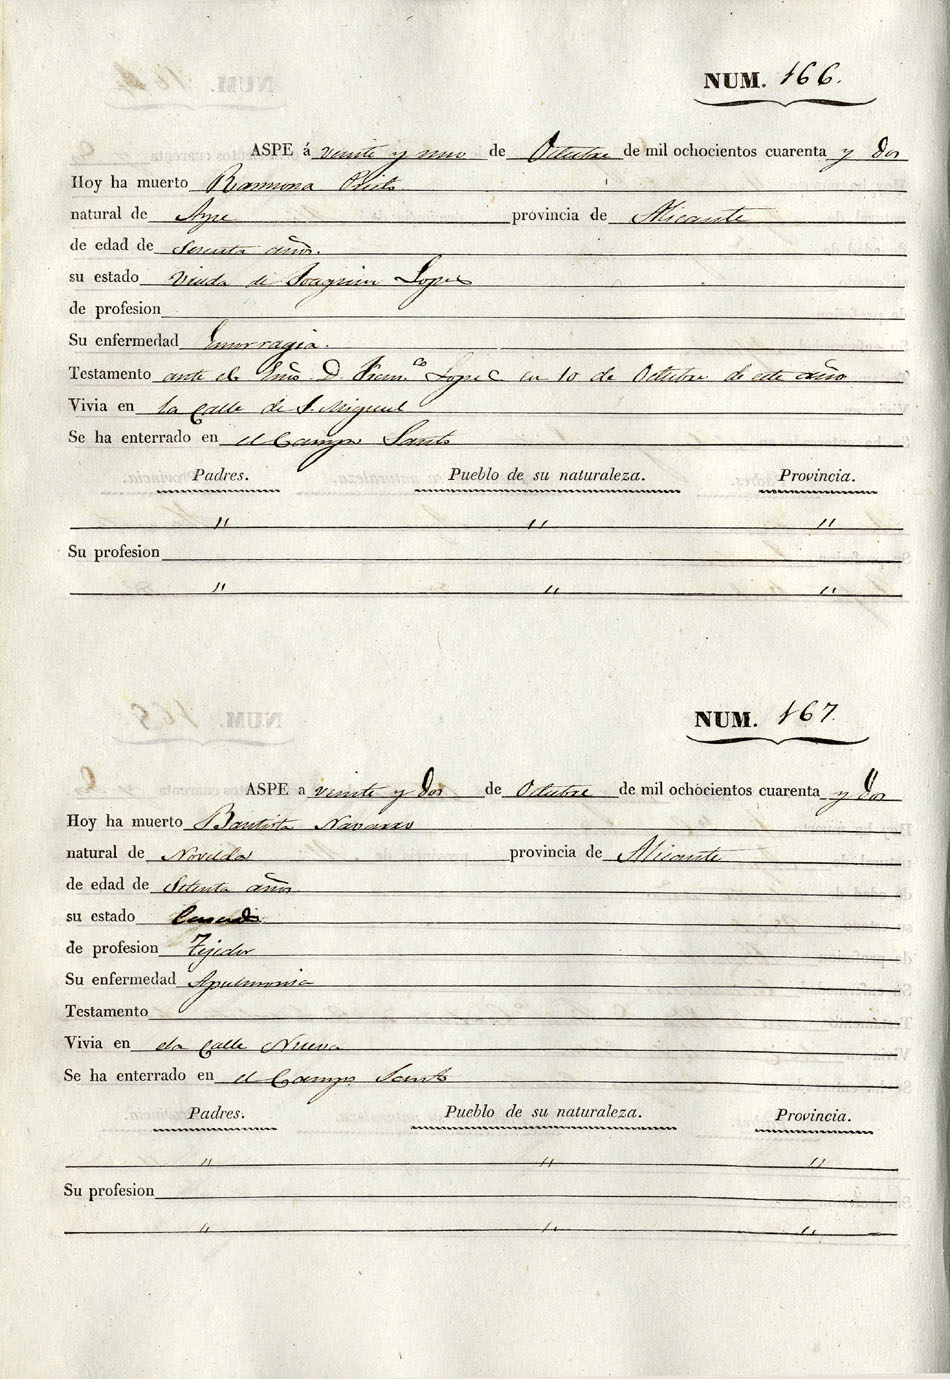 NUM. 166.
ASPE á veinte y uno de Octubre de mil ochocientos cuarenta y dos
Hoy ha muerto Ramona Prieto
natural de Aspe provincia de Alicante
de edad de años.
su estado Viuda de Joaquin Lopez
de profesion
Su enfermedad Emorragia.
Testamento ante el Esno. D. Franco. Lopez en 10 de Octubre de este año
Vivia en la Calle de S. Miguel
Se ha enterrado en el Campo Santo
Padres. Pueblo de su naturaleza. Provincia.
" " "
Su profesion
" " "
NUM. 167.
ASPE a veinte y dos de Octubre de mil ochocientos cuarenta y dos
Hoy ha muerto Bautista Navarro
natural de Novelda provincia de Alicante
de edad de Setenta años
su estado Casado
de profesion Tejedor
Su enfermedad
Testamento
Vivia en la Calle Nueva
Se ha enterrado en el Campo Santo
Padres. Pueblo de su naturaleza. Provincia.
" " "
Su profesion
" " "